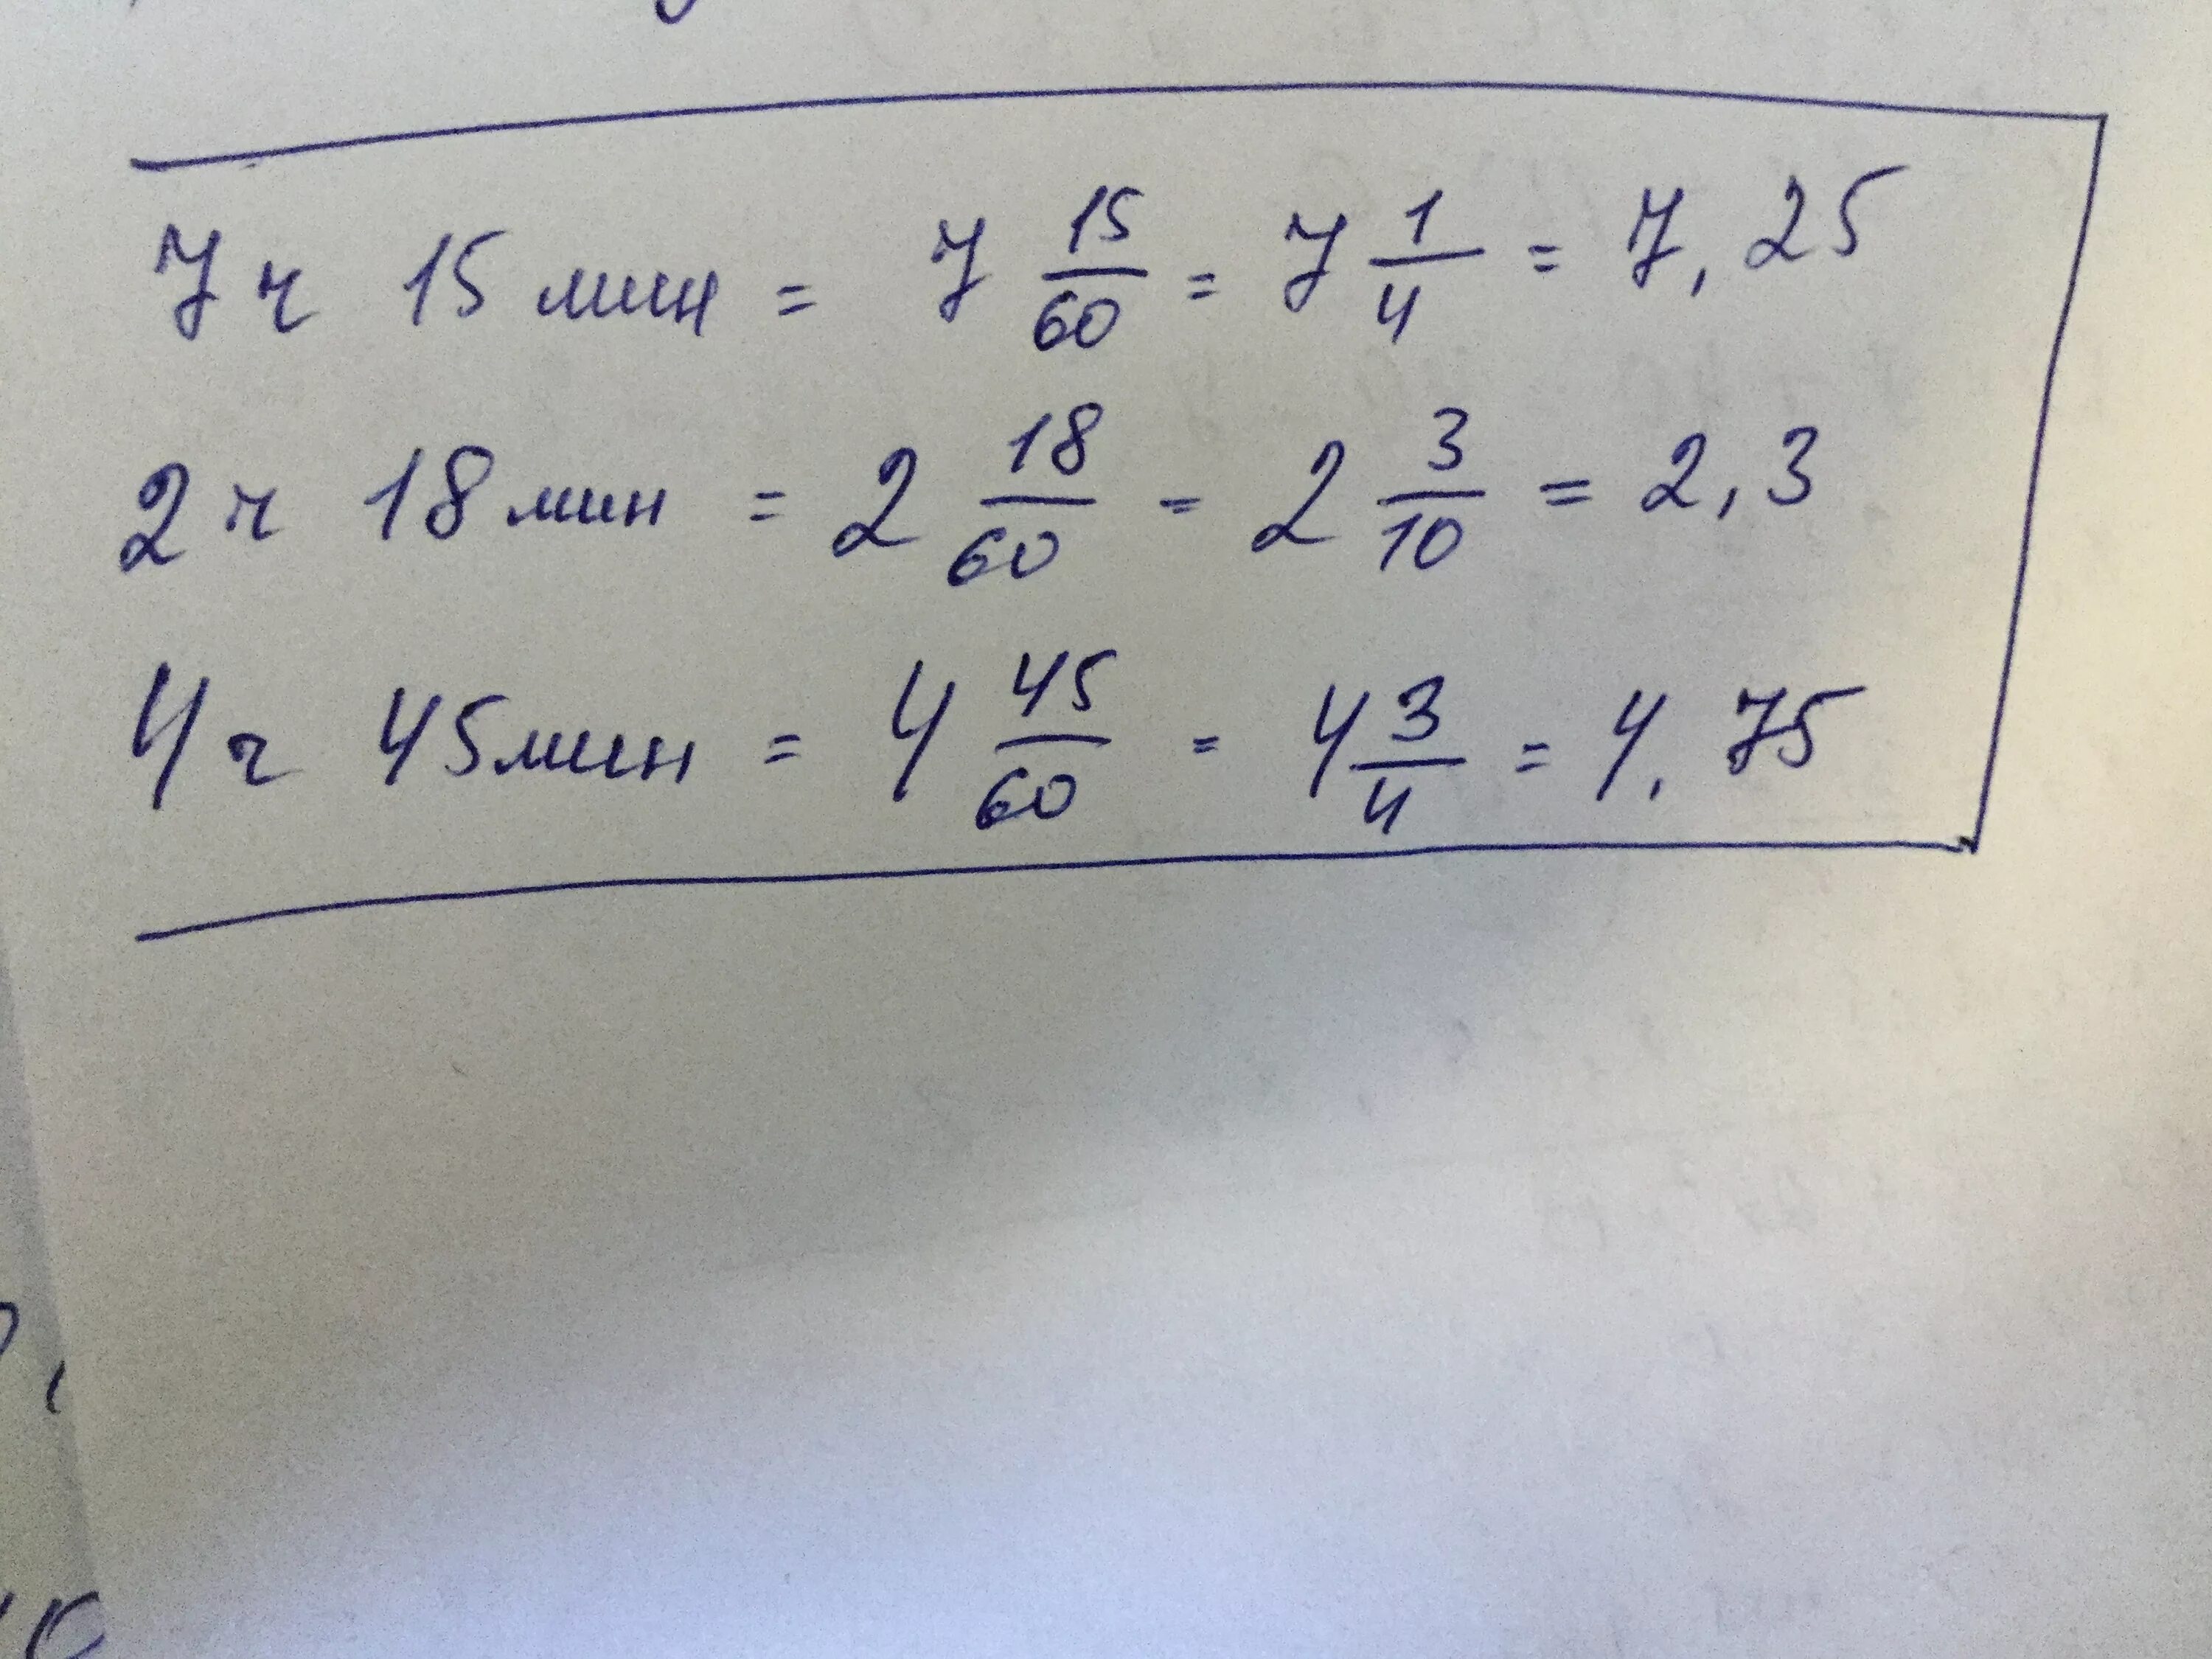 7 ч 15 мин = 7 15/60 = 7 1/4 = 7,25
2 ч 18 мин = 2 18/60 = 2 3/10 = 2,3
4 ч 45 мин = 4 45/60 = 4 3/4 = 4,75